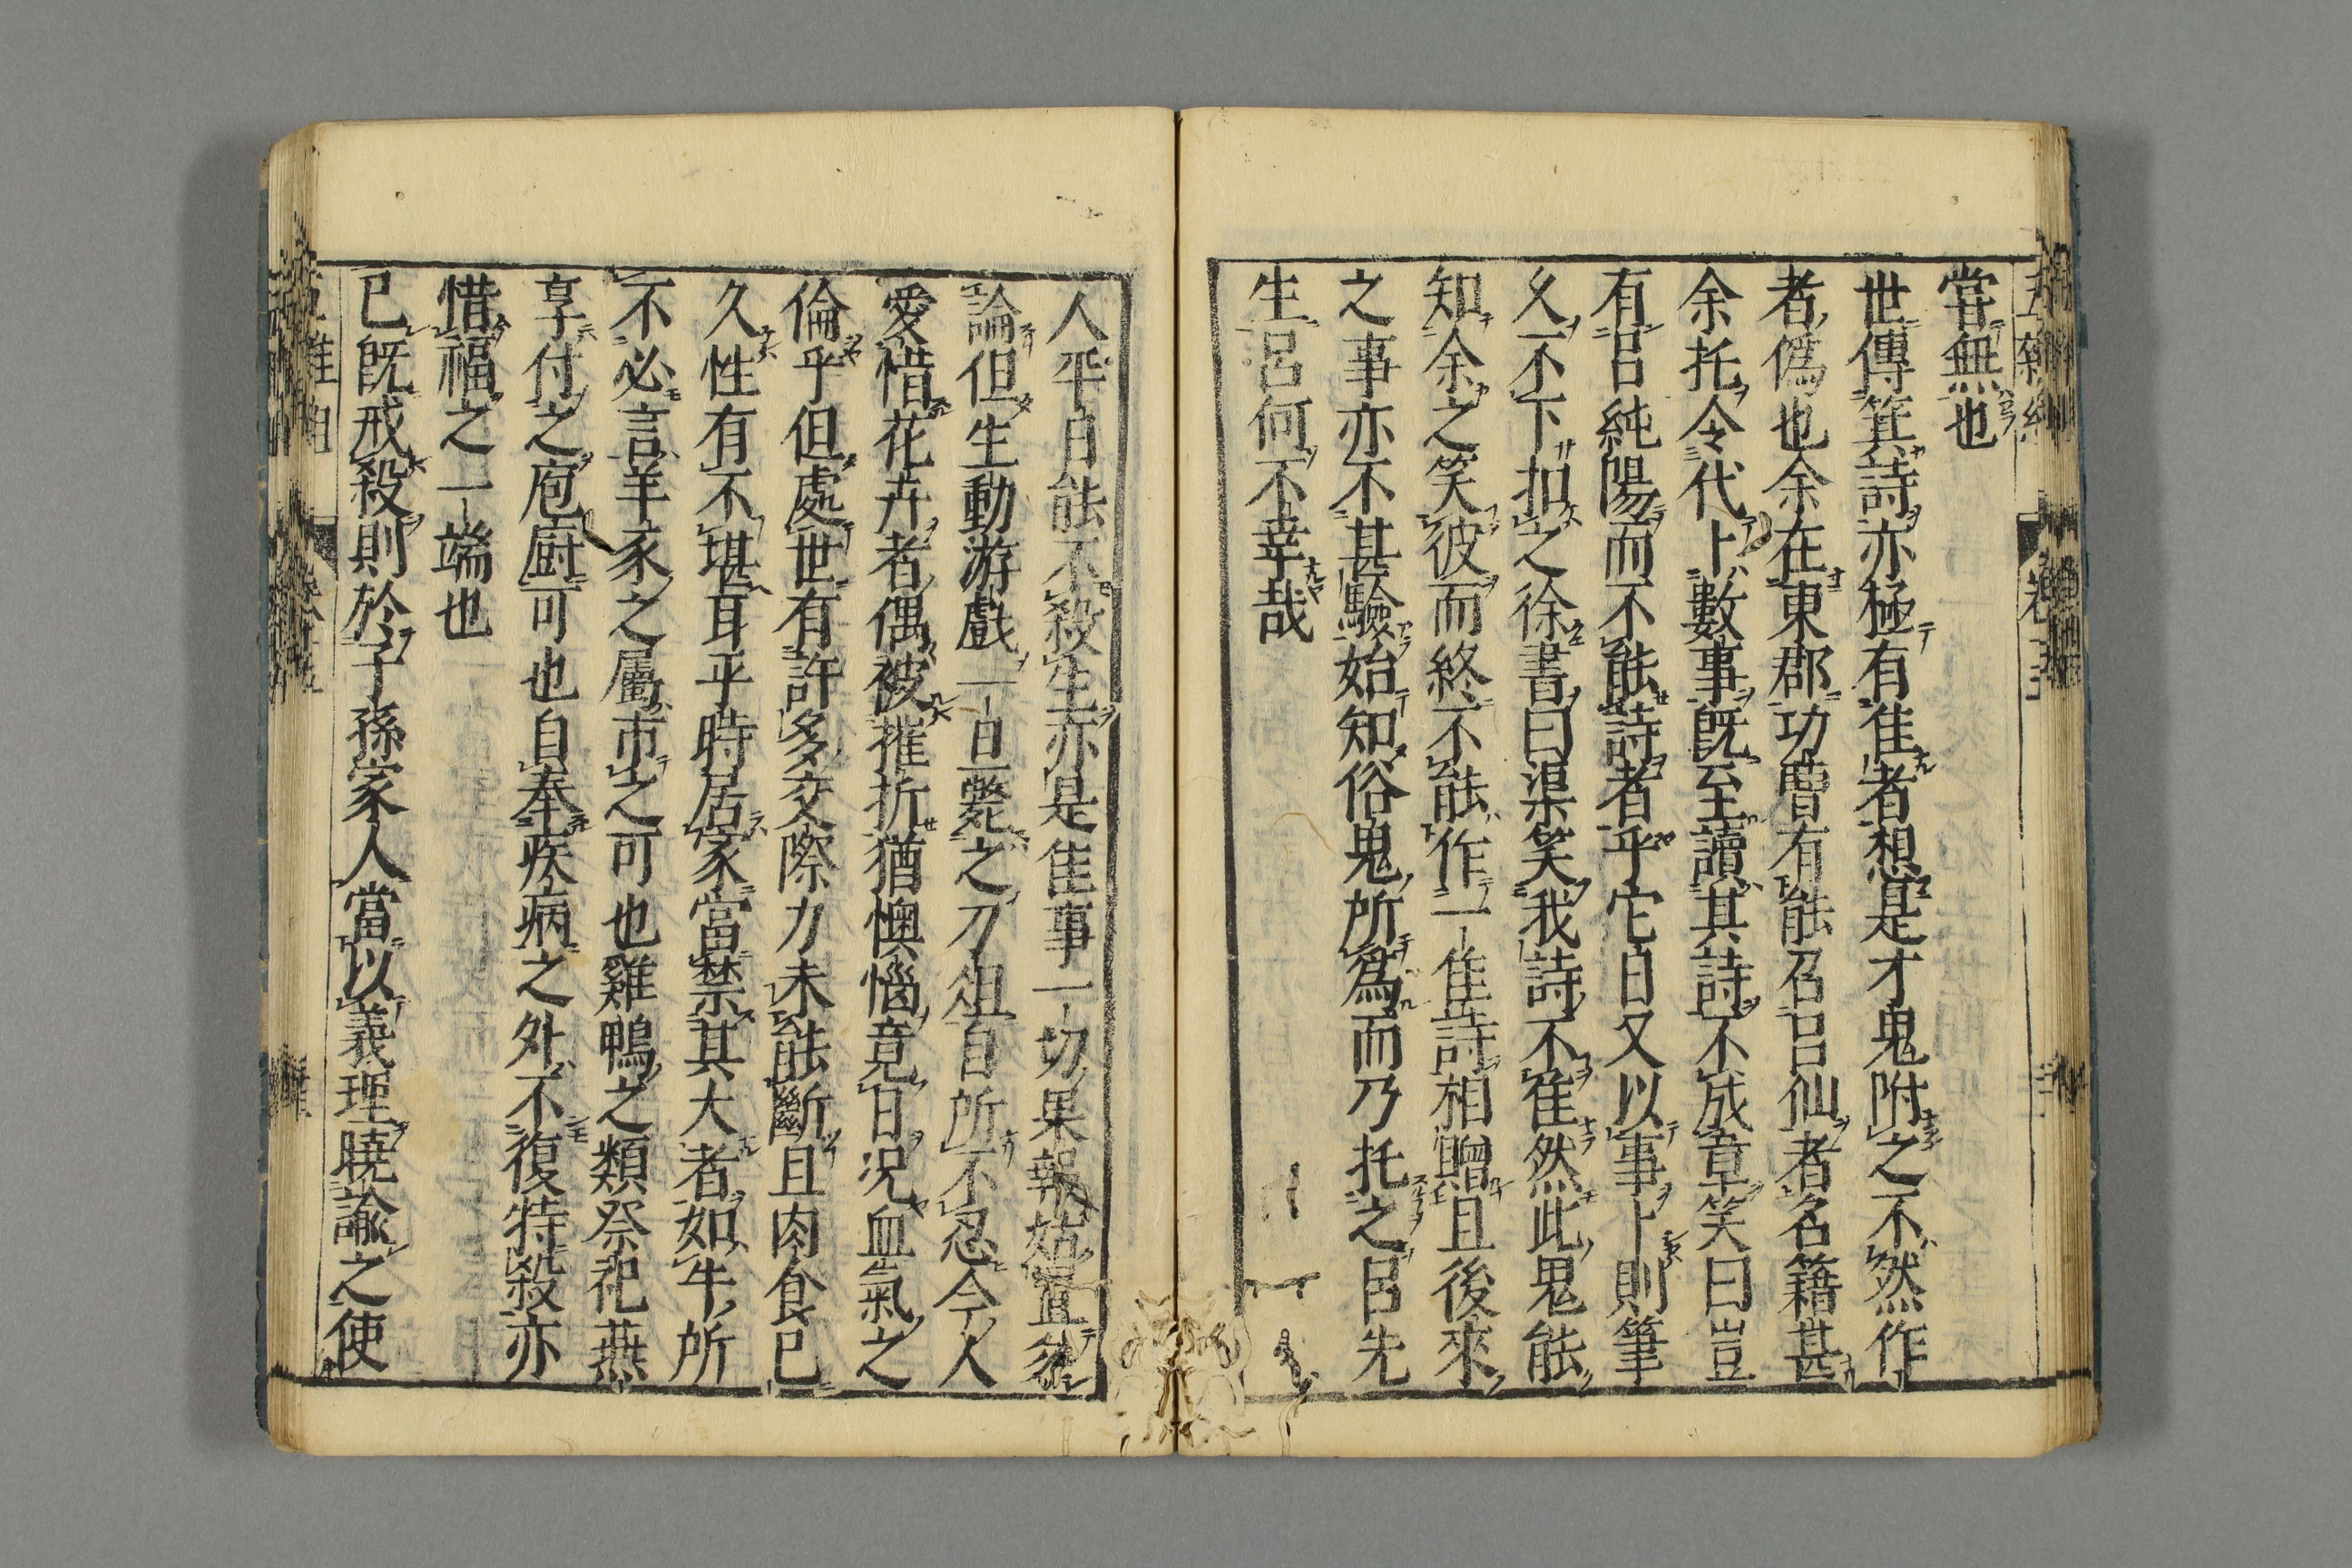 嘗無也
世傳箕詩亦極有佳者想是才鬼附之不然作
者僞也余在東郡功曹有能召呂仙者名籍甚
余托令代卜數事既至讀其詩不成章笑曰豈
有呂純陽而不能詩者乎它日又以事卜則筆
久不下扣之徐書曰渠笑我詩不佳然此鬼能
知余之笑彼而終不能作一佳詩相贈且後來
之事亦不甚驗始知俗鬼所爲而乃托之呂先
生呂何不幸哉
人平日能不殺生亦是佳事一切果報姑置
論但生動游戲一旦斃之刀俎自所不忍今人
愛惜花卉者偶被摧折猶懊惱竟日况血氣之
倫乎但處世有許多交際力未能斷且肉食已
久性有不堪耳平時居家當禁其大者如牛所
不必言羊豕之屬市之可也雞鴨之類祭祀燕
享付之庖厨可也自奉疾病之外不復特殺亦
惜福之一端也
已既戒殺則於子孫家人當以義理曉諭之使